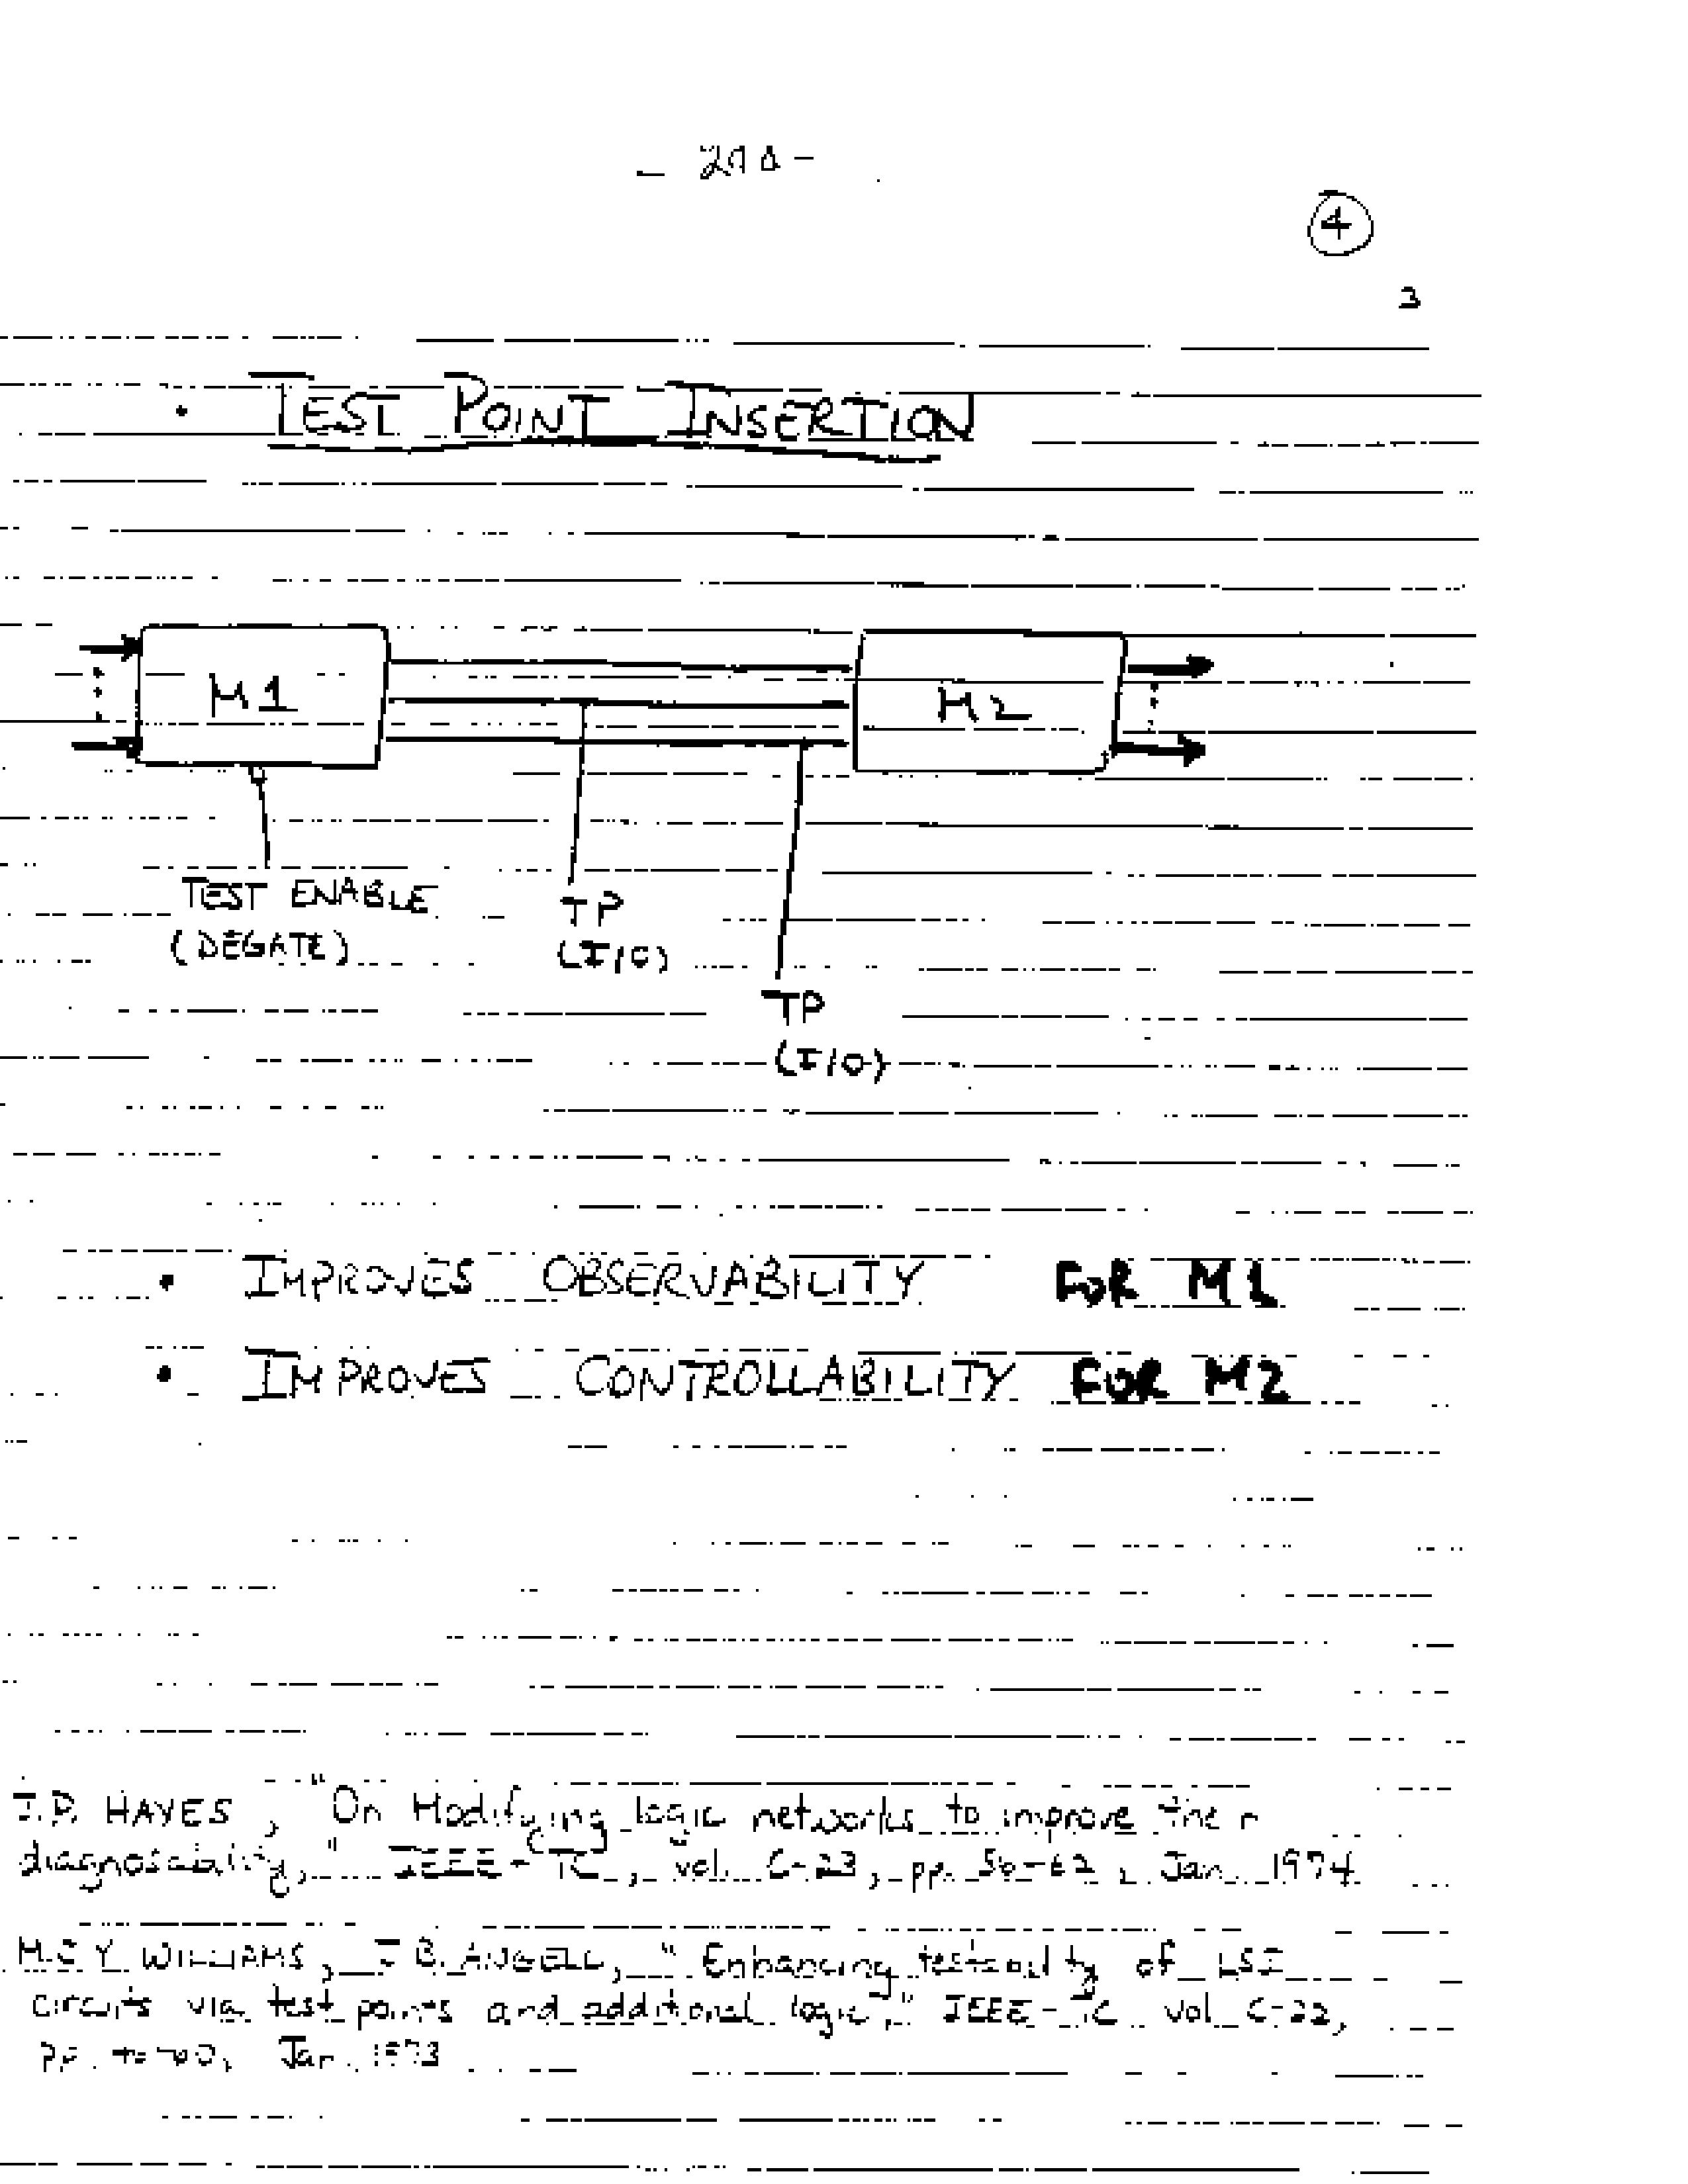 4
3
• TEST POINT INSERTION
M1 M2
TEST ENABLE
(DEGATE)
TP
(I/O)
TP
(I/O)
• IMPROVES OBSERVABILITY FOR M1
• IMPROVES CONTROLLABILITY FOR M2
J.P. HAYES, "On Modifying logic networks to improve their
diagnosability," IEEE-TC, vol. C-23, pp. 56-62, Jan. 1974
M.J.Y. WILLIAMS, J.B. ANGELL, "Enhancing testability of LSI
circuits via test points and additional logic," IEEE-TC vol. C-22,
pp. Jan. 1973